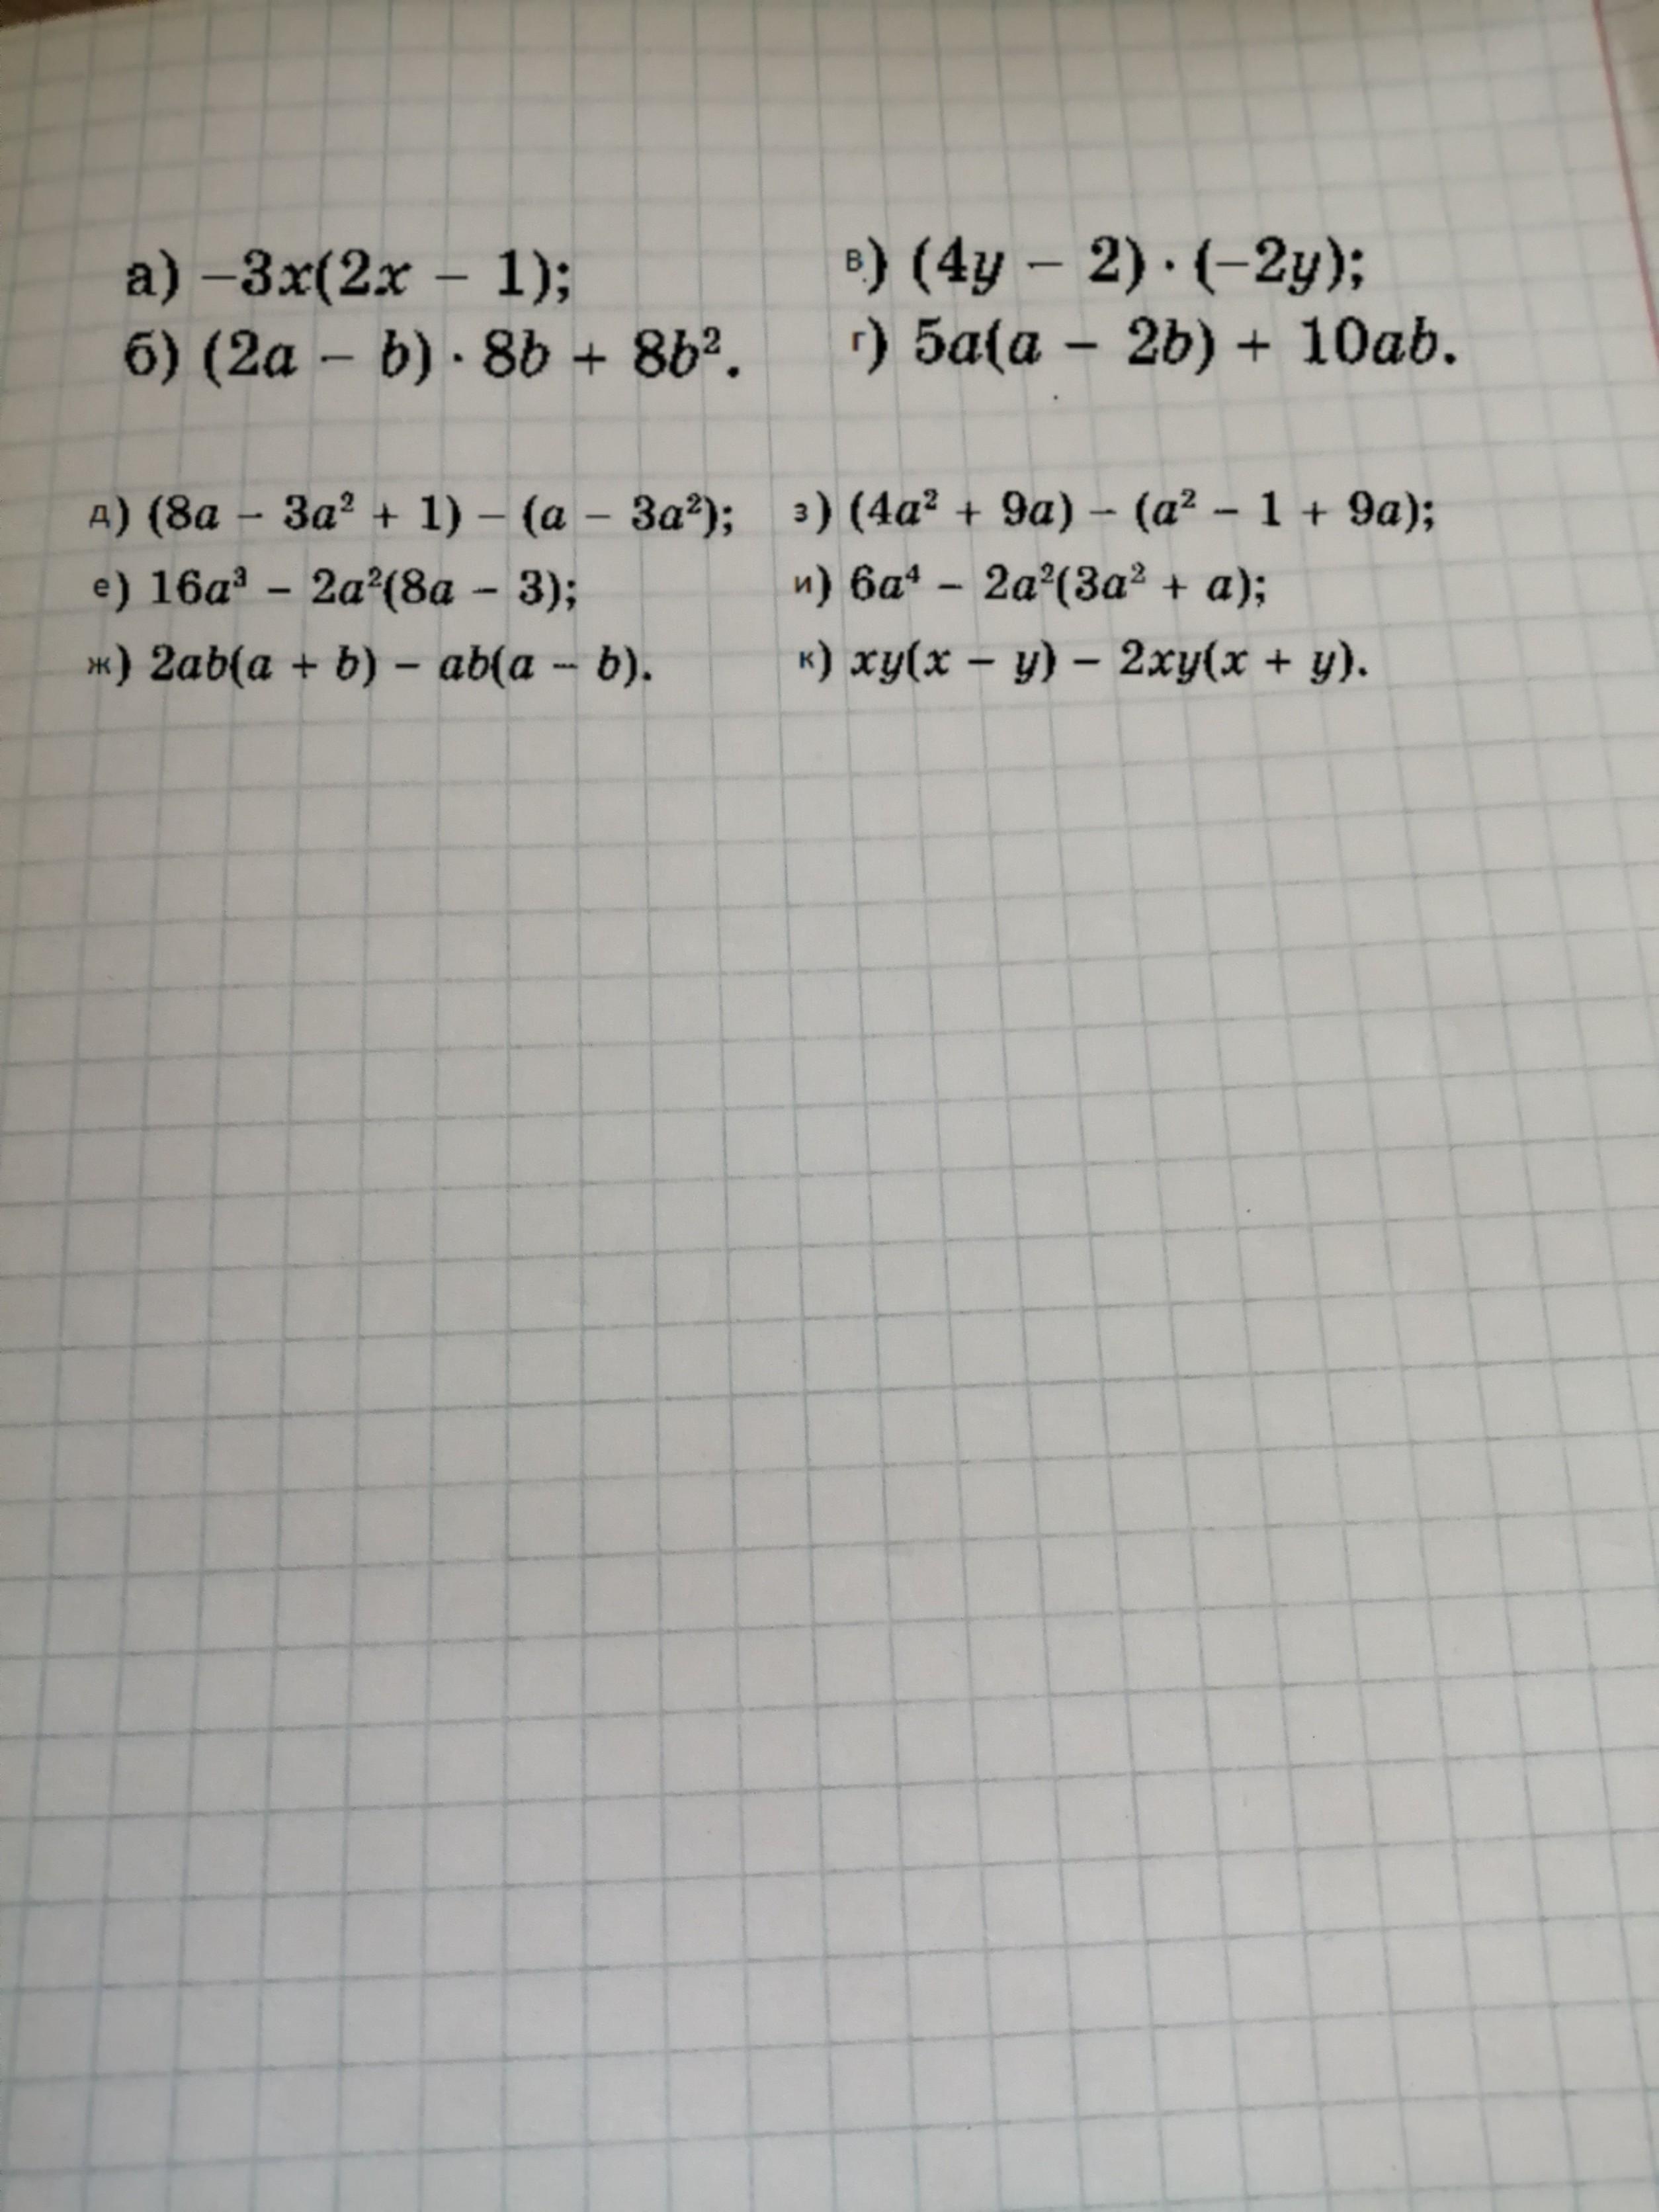 а) –3x(2x – 1);
б) (2a – b) · 8b + 8b².
в) (4y – 2) · (–2y);
г) 5a(a – 2b) + 10ab.
д) (8a – 3a² + 1) – (a – 3a²);
е) 16a³ – 2a²(8a – 3);
ж) 2ab(a + b) – ab(a – b).
з) (4a² + 9a) – (a² – 1 + 9a);
и) 6a⁴ – 2a²(3a² + a);
к) xy(x – y) – 2xy(x + y).